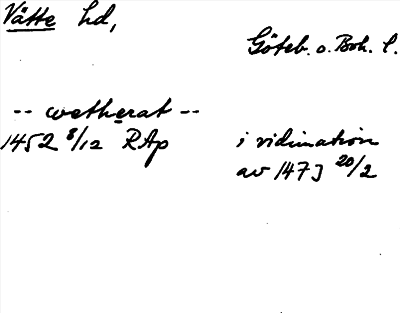 Vätte hd,
Göteb. o. Boh. l.
-- wetherat --
1452 8/12 RAp i vidimation
av 1473 20/2